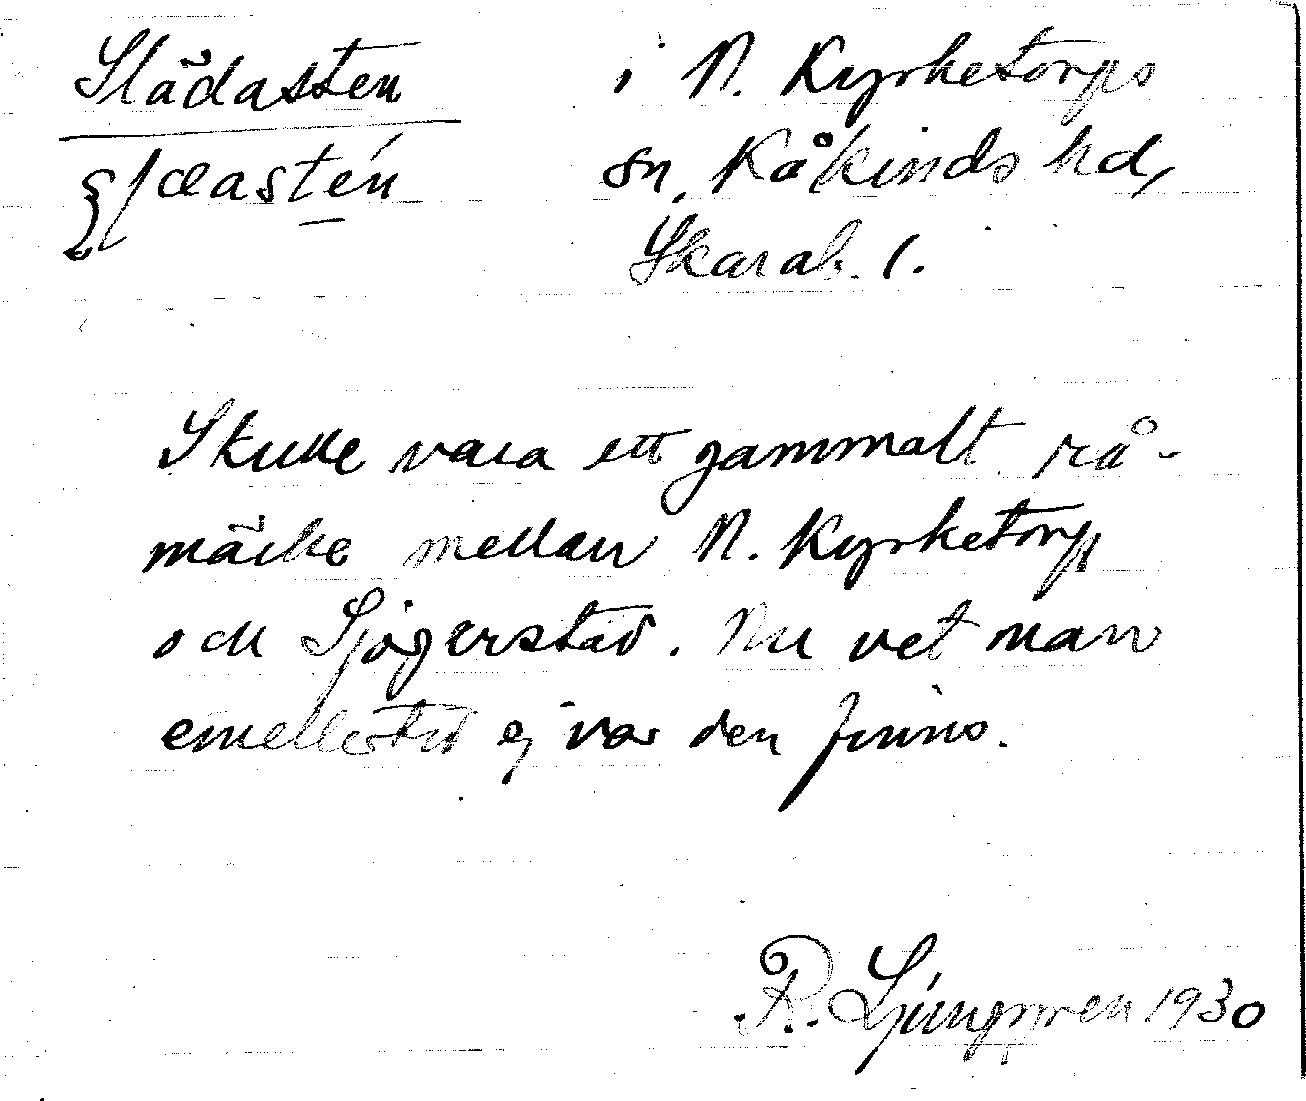 Slädasten i N. Kyrketorps
ʒlæastén sn, Kåkinds hd,
Skarab. l.
Skulle vara ett gammalt rå-
märke mellan N. Kyrketorp
och Sjögerstad. Nu vet man
emellertid ej var den finns.
R. Ljunggren 1930